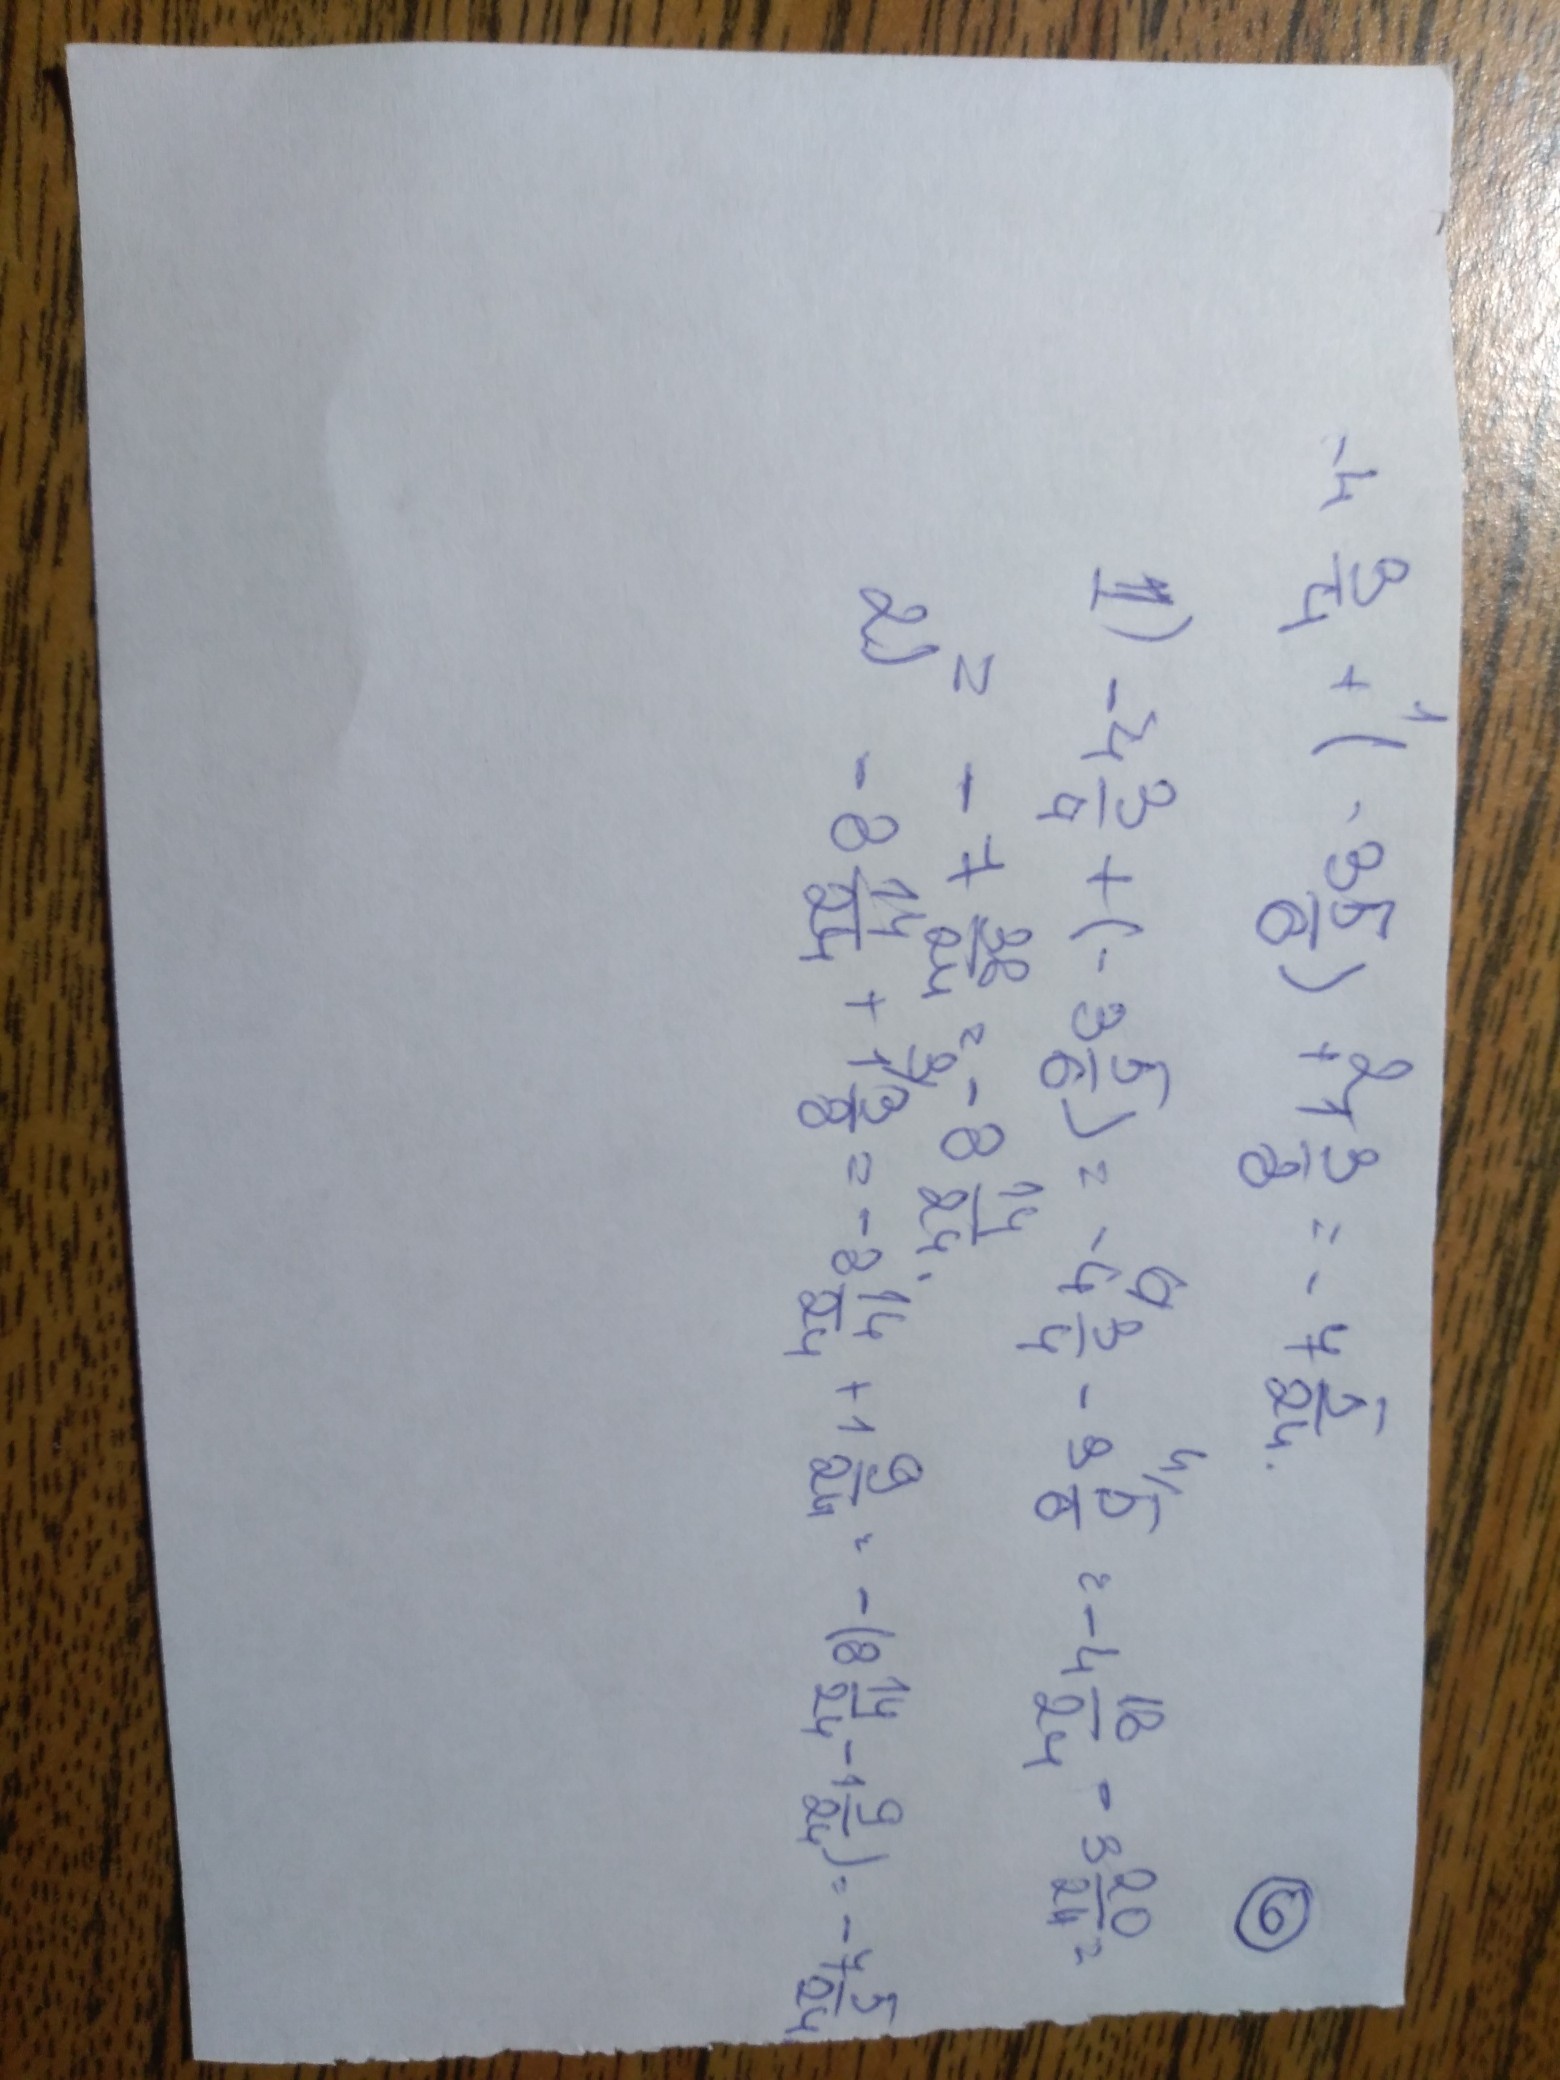 ⑥
-4 3/4 + (-3 5/6) + 1 3/8 = -7 5/24.
1) -4 3/4 + (-3 5/6) = -4 3/4 - 3 5/6 = -4 18/24 - 3 20/24 =
= -7 38/24 = -8 14/24.
2) -8 14/24 + 1 3/8 = -8 14/24 + 1 9/24 = -(8 14/24 - 1 9/24) = -7 5/24